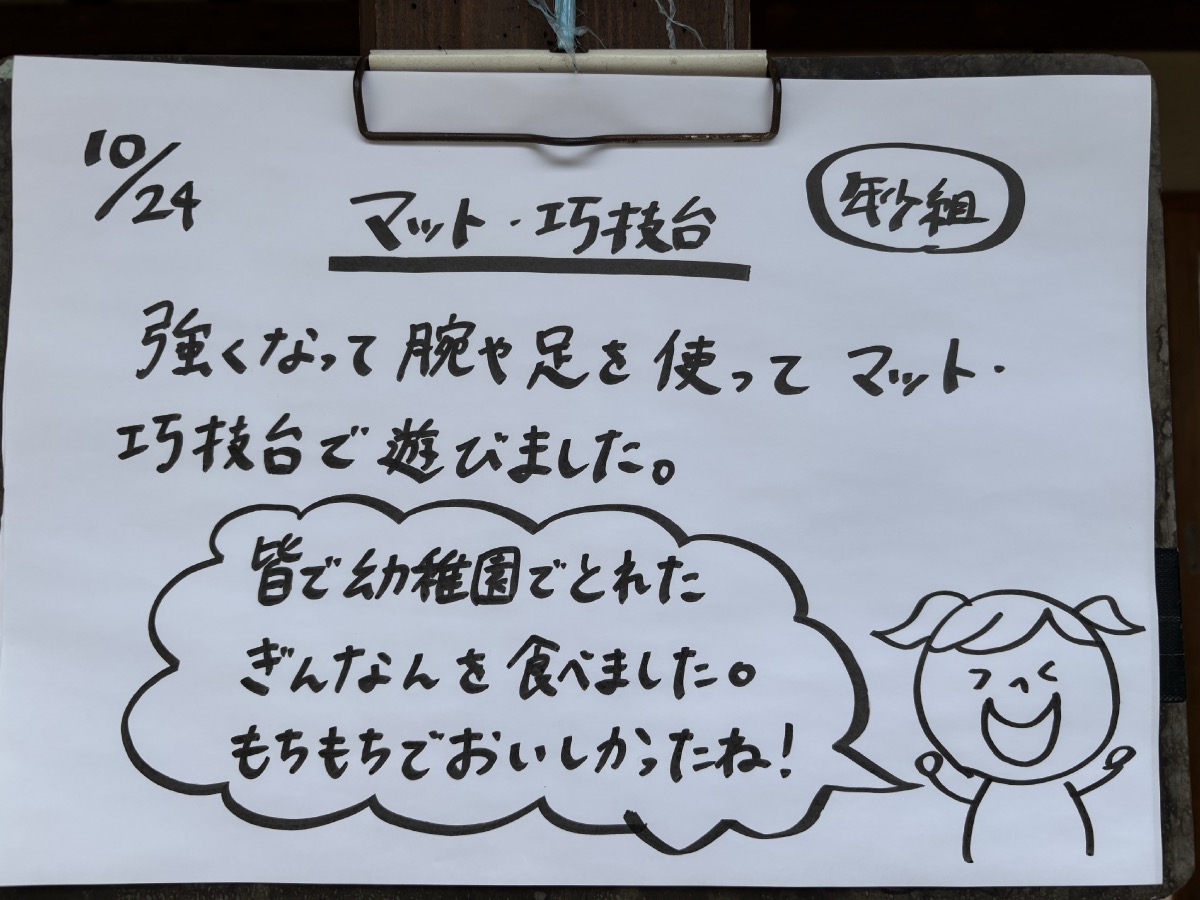 10/24
マット・巧技台
年少組
強くなって腕や足を使ってマット・
巧技台で遊びました。
皆で幼稚園でとれた
ぎんなんを食べました。
もちもちでおいしかったね!